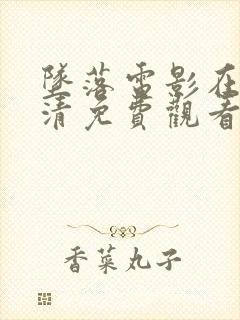 墜落電影在
清免費觀看
香菜丸子